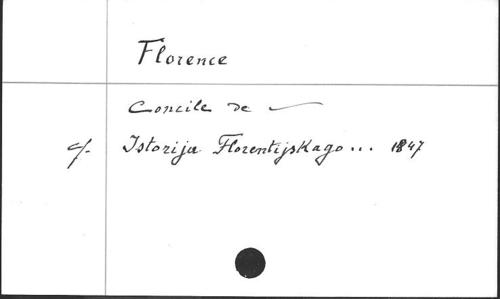 Florence
Concile de —
cf. Istorija Florentijskago... 1847